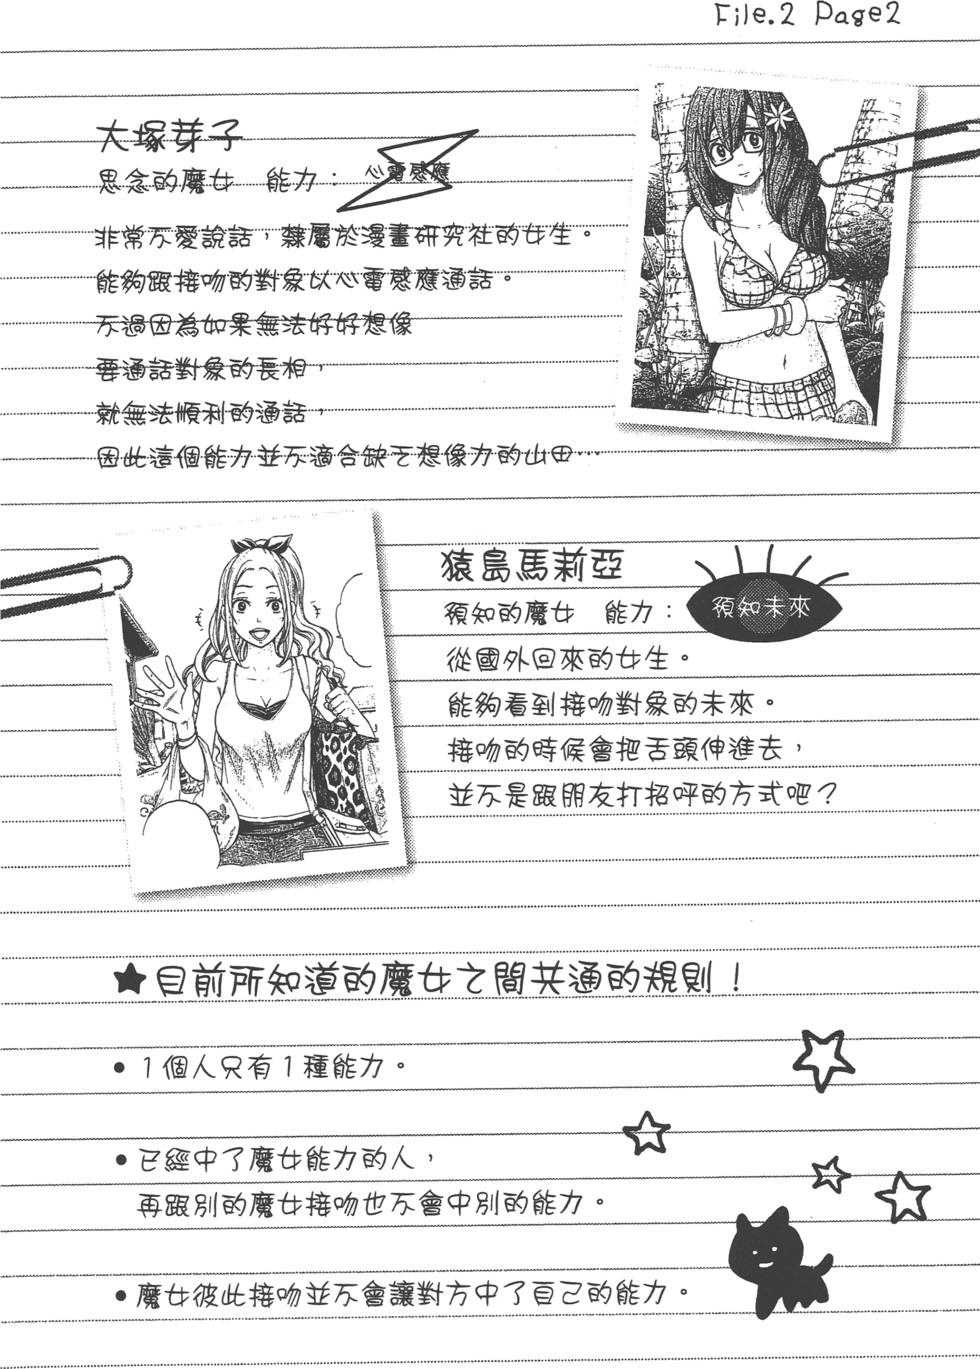 File.2 Page2
大塚芽子
思念的魔女　能力：心電感應
非常不愛說話，隸屬於漫畫研究社的女生。
能夠跟接吻的對象以心電感應通話。
不過因為如果無法好好想像
要通話對象的長相，
就無法順利的通話，
因此這個能力並不適合缺乏想像力的山田…
猿島馬莉亞
預知的魔女　能力：預知未來
從國外回來的女生。
能夠看到接吻對象的未來。
接吻的時候會把舌頭伸進去，
並不是跟朋友打招呼的方式吧？
★目前所知道的魔女之間共通的規則！
●1個人只有1種能力。
●已經中了魔女能力的人，
再跟別的魔女接吻也不會中別的能力。
●魔女彼此接吻並不會讓對方中了自己的能力。